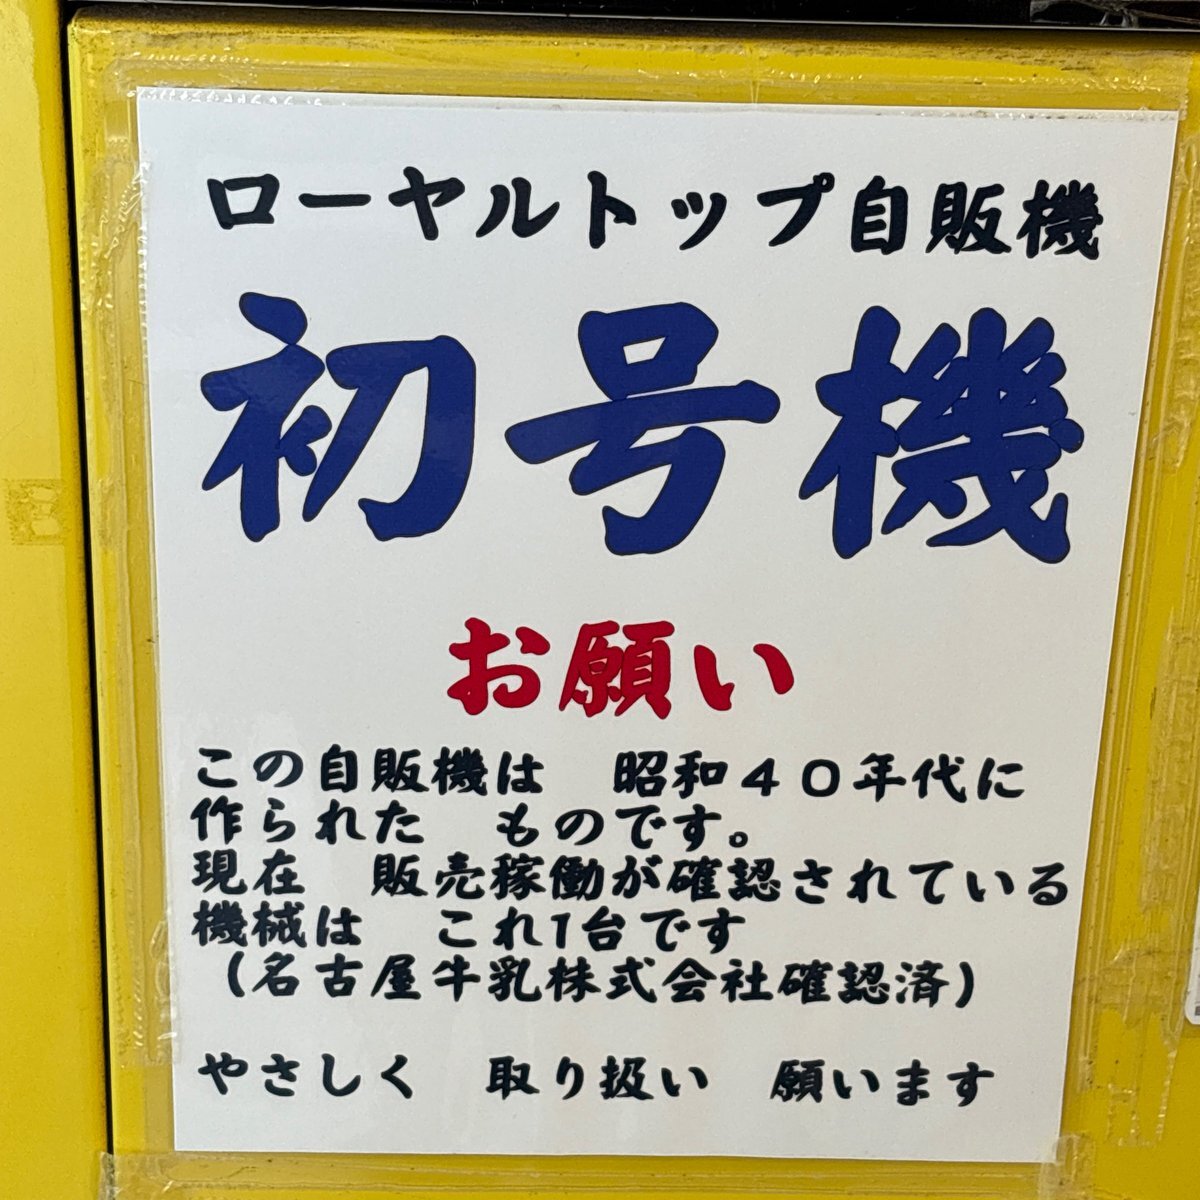 ローヤルトップ自販機
初号機
お願い
この自販機は　昭和４０年代に
作られた　ものです。
現在　販売稼働が確認されている
機械は　これ1台です
（名古屋牛乳株式会社確認済）
やさしく　取り扱い　願います